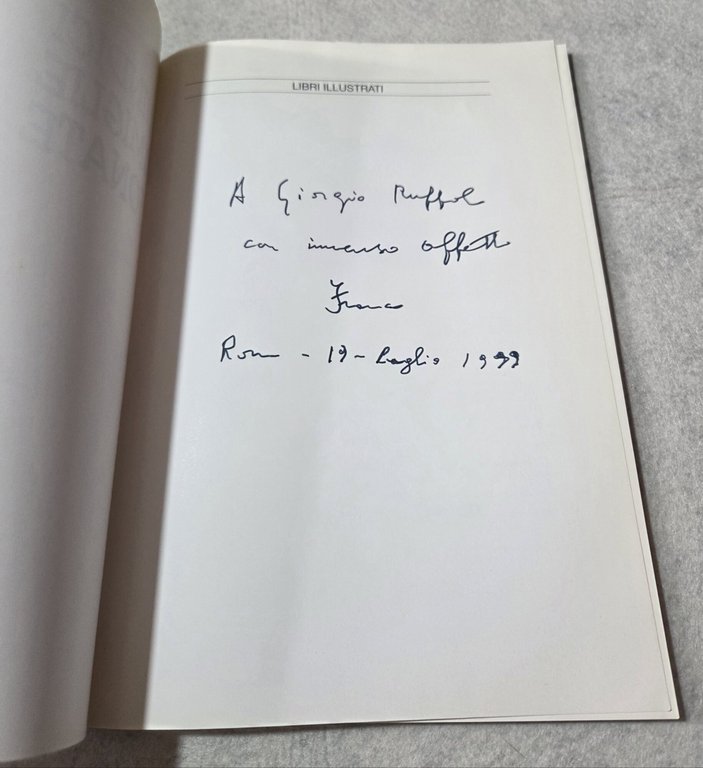 LIBRI ILLUSTRATI
A Giorgio Ruffolo
con immenso affetto
Franco
Roma - 19 - Luglio 1999